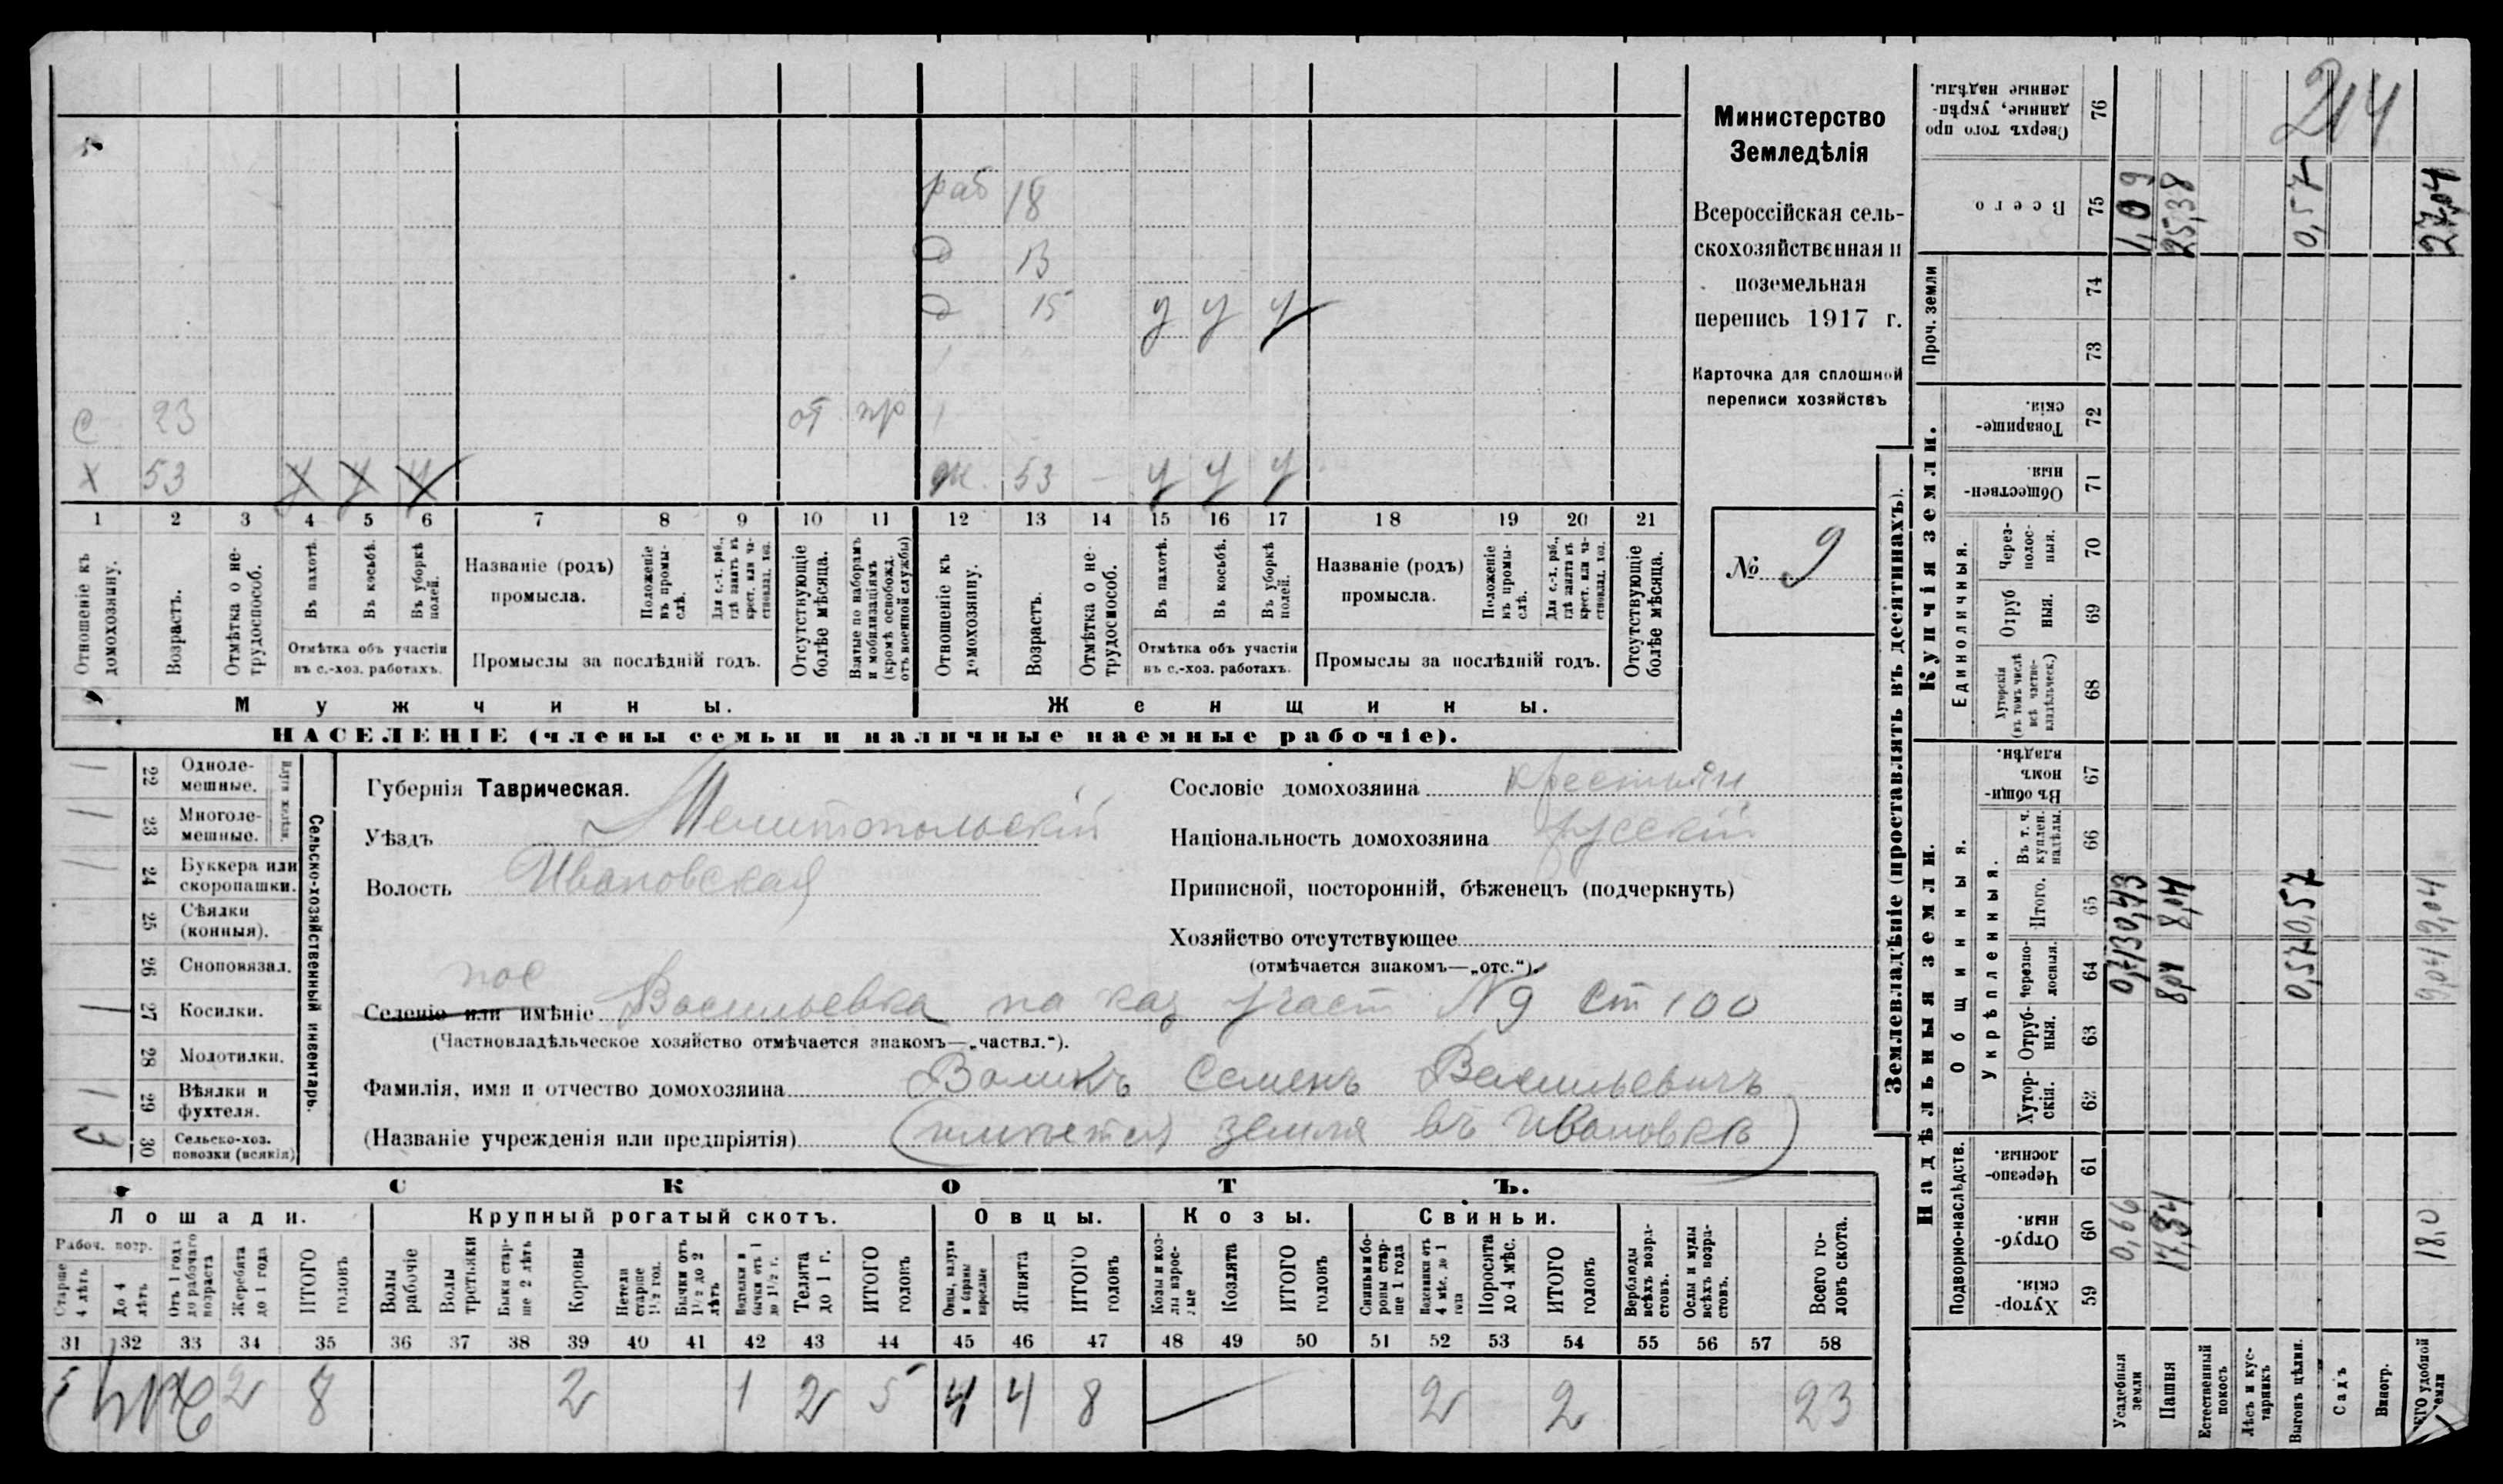 Министерство
Земледѣлія
Всероссійская сель-
скохозяйственная и
поземельная
перепись 1917 г.
Карточка для сплошной
переписи хозяйствъ
№ 9
214
раб 18
д 13
д 15 у у у
с 23 от пр
х 53 у у у ж. 53 — у у у
1 2 3 4 5 6 7 8 9 10 11 12 13 14 15 16 17 18 19 20 21
Отношеніе къ домохозяину.
Возрастъ.
Отмѣтка о не-трудоспособ.
Въ пахотѣ.
Въ косьбѣ.
Въ уборкѣ полей.
Отмѣтка объ участіи
въ с.-хоз. работахъ.
Названіе (родъ)
промысла.
Положеніе въ промы-слѣ.
Для с.-х. раб., гдѣ занятъ въ крест. или ча-стновлад. хоз.
Промыслы за послѣдній годъ.
Отсутствующіе болѣе мѣсяца.
Взятые по наборамъ и мобилизаціямъ (кромѣ освобожд. отъ военной службы)
Отношеніе къ домохозяину.
Возрастъ.
Отмѣтка о не-трудоспособ.
Въ пахотѣ.
Въ косьбѣ.
Въ уборкѣ полей.
Отмѣтка объ участіи
въ с.-хоз. работахъ.
Названіе (родъ)
промысла.
Положеніе въ промы-слѣ.
Для с.-х. раб., гдѣ занята въ крест. или ча-стновлад. хоз.
Промыслы за послѣдній годъ.
Отсутствующіе болѣе мѣсяца.
Мужчины. Женщины.
НАСЕЛЕНІЕ (члены семьи и наличные наемные рабочіе).
Сельско-хозяйственный инвентарь.
22 Одноле-мешные.
23 Многоле-мешные.
24 Буккера или скоропашки.
25 Сѣялки (конныя).
26 Сноповязал.
27 Косилки.
28 Молотилки.
29 Вѣялки и фухтеля.
30 Сельско-хоз. повозки (всякія) 3
Губернія Таврическая.
Уѣздъ Мелитопольскій
Волость Ивановская
Сословіе домохозяина крестьян
Національность домохозяина русскій
Приписной, посторонній, бѣженецъ (подчеркнуть)
Хозяйство отсутствующее
(отмѣчается знакомъ—„отс.“).
пос
Селеніе или имѣніе Васильевка на каз участ № 9 ст 100
(Частновладѣльческое хозяйство отмѣчается знакомъ—„частвл.“).
Фамилія, имя и отчество домохозяина Воликъ Семенъ Васильевичъ
(Названіе учрежденія или предпріятія) (имѣется земля въ Ивановкѣ)
СКОТЪ.
Лошади. Крупный рогатый скотъ. Овцы. Козы. Свиньи.
Рабоч. возр.
Старше 4 лѣтъ
До 4 лѣтъ
Отъ 1 года до рабочаго возраста
Жеребята до 1 года
ИТОГО головъ
Волы рабочіе
Волы третьяки
Быки стар-ше 2 лѣтъ
Коровы
Нетели старше 1½ год.
Бычки отъ 1½ до 2 лѣтъ
Телята до 1 г.
ИТОГО головъ
Ягнята
ИТОГО головъ
Козлята
ИТОГО головъ
Поросята до 4 мѣс.
ИТОГО головъ
Верблюды всѣхъ возра-стовъ.
Ослы и мулы всѣхъ возра-стовъ.
Всего го-ловъ скота.
31 32 33 34 35 36 37 38 39 40 41 42 43 44 45 46 47 48 49 50 51 52 53 54 55 56 57 58
2 8 2 1 2 5 4 4 8 2 2 23
Землевладѣніе (проставлять въ десятинахъ).
Надѣльныя земли. Купчія земли. Проч. земли
Подворно-наслѣдств. Общинныя. Укрѣпленныя. Единоличныя.
59 Хутор-скія.
60 Отруб-ныя. 0,66 18,0
61 Черезпо-лосныя.
62 Хутор-скія.
63 Отруб-ныя.
64 Черезпо-лосныя. 8,04 0,57 9,04
65 Итого. 0,43 8,04 0,57 9,04
66 Въ т. ч. куплен. надѣлы.
67 Въ общи-нномъ владѣн.
68 Хуторскія (въ томъ числѣ всѣ частно-владѣльческ.)
69 Отруб ныя.
70 Через-полос-ныя.
71 Обществен-ныя.
72 Товарище-скія.
73
74
75 Всего 1,09 25,38 0,57 27,04
76 Сверхъ того про данные, укрѣп-ленные надѣлы.
Усадебныя земли
Пашня
Естественный покосъ
Лѣсъ и кус-тарникъ
Выгонъ цѣлин.
Садъ
Виногр.
удобной земли